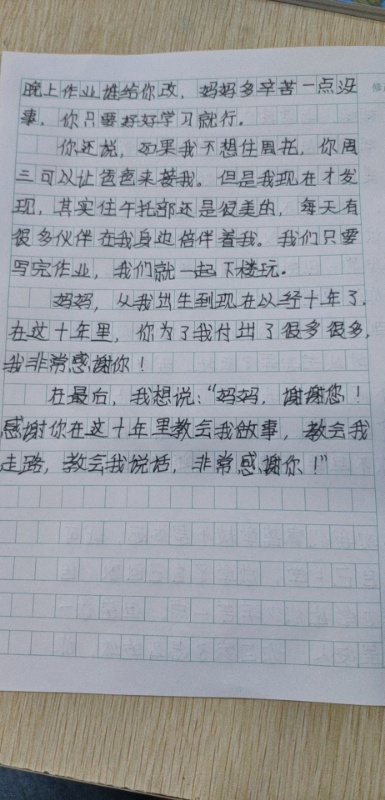 晚上作业堆给你改，妈妈多辛苦一点没
事，你只要好好学习就行。
你还说，如果我不想住周托，你周
三可以让爸爸来接我。但是我现在才发
现，其实住午托部还是很美的，每天有
很多伙伴在我身边陪伴着我。我们只要
写完作业，我们就一起下楼玩。
妈妈，从我出生到现在以经十年了，
在这十年里，你为了我付出了很多很多，
我非常感谢你！
在最后，我想说：“妈妈，谢谢您！
感谢你在这十年里教会我做事，教会我
走路，教会我说话，非常感谢你！”